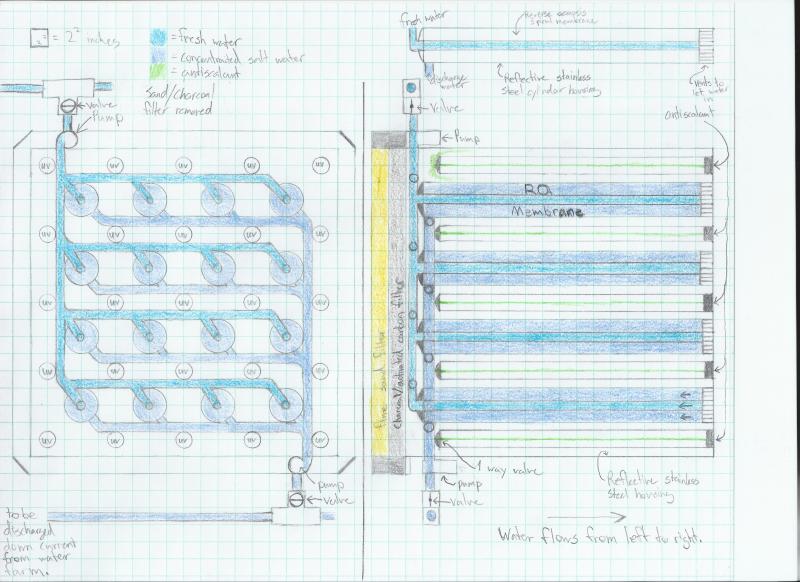 = 2² inches
= fresh water
= concentrated salt water
= antiscalant
sand/charcoal
filter removed
valve
Pump
uv uv uv uv uv
uv uv uv uv uv
uv uv uv uv uv
uv uv uv uv uv
uv uv uv uv uv
pump
valve
to be
discharged
down current
from water
farm.
fresh water
Reverse osmosis
spiral membrane
discharge
water
Reflective stainless
steel cylindar housing
Vents to
let water
in
antiscalant
valve
Pump
R.O.
Membrane
fine sand filter
charcoal/activated carbon filter
1 way valve
pump
valve
Reflective stainless
steel housing
Water flows from left to right.